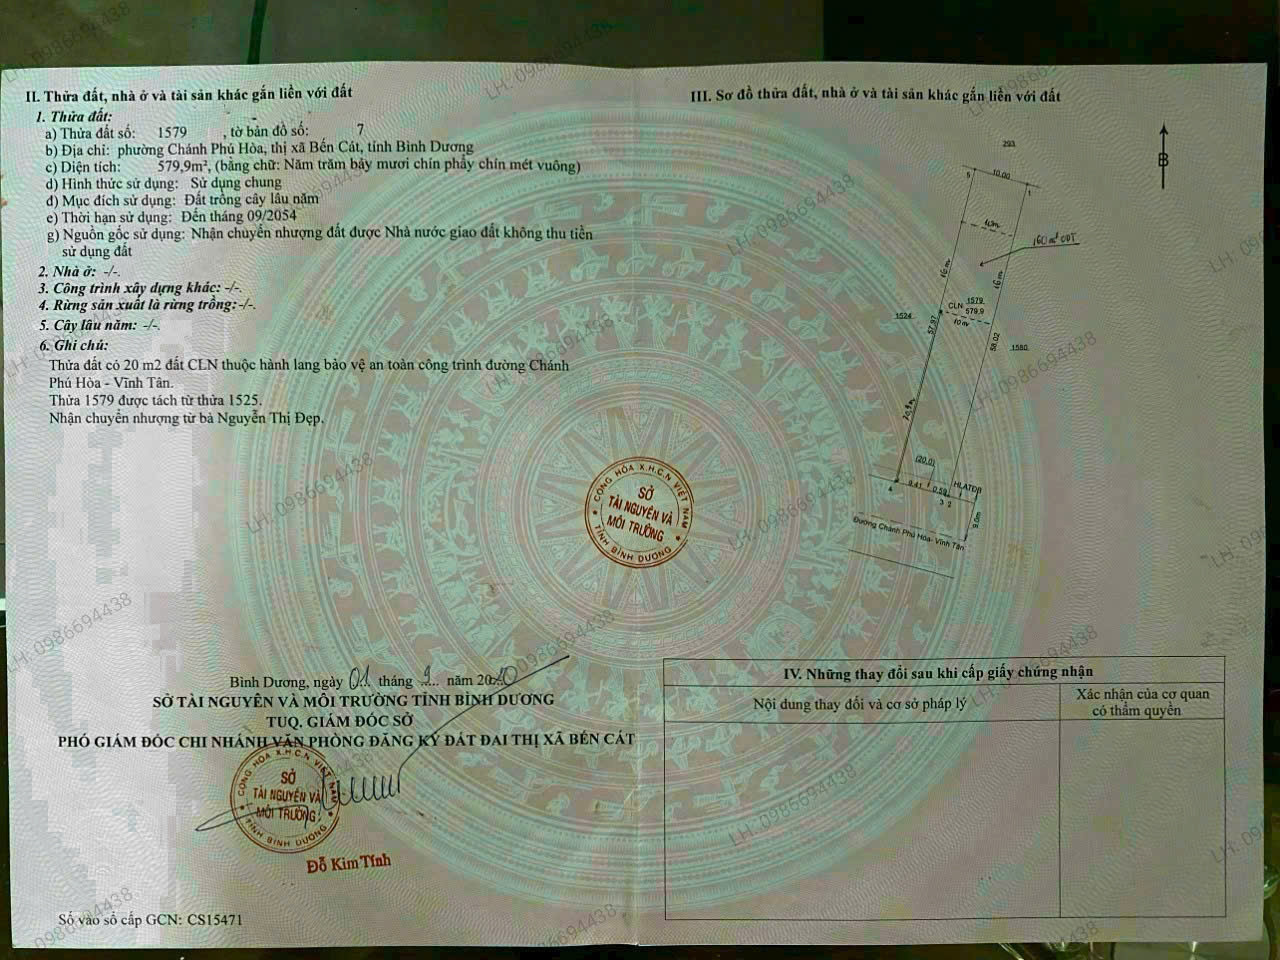 II. Thửa đất, nhà ở và tài sản khác gắn liền với đất
1. Thửa đất:
a) Thửa đất số: 1579 , tờ bản đồ số: 7
b) Địa chỉ: phường Chánh Phú Hòa, thị xã Bến Cát, tỉnh Bình Dương
c) Diện tích: 579,9m², (bằng chữ: Năm trăm bảy mươi chín phẩy chín mét vuông)
d) Hình thức sử dụng: Sử dụng chung
đ) Mục đích sử dụng: Đất trồng cây lâu năm
e) Thời hạn sử dụng: Đến tháng 09/2054
g) Nguồn gốc sử dụng: Nhận chuyển nhượng đất được Nhà nước giao đất không thu tiền
sử dụng đất
2. Nhà ở: -/-.
3. Công trình xây dựng khác: -/-.
4. Rừng sản xuất là rừng trồng:-/-.
5. Cây lâu năm: -/-.
6. Ghi chú:
Thửa đất có 20 m2 đất CLN thuộc hành lang bảo vệ an toàn công trình đường Chánh
Phú Hòa - Vĩnh Tân.
Thửa 1579 được tách từ thửa 1525.
Nhận chuyển nhượng từ bà Nguyễn Thị Đẹp.
Bình Dương, ngày 01 tháng 9 năm 2020
SỞ TÀI NGUYÊN VÀ MÔI TRƯỜNG TỈNH BÌNH DƯƠNG
TUQ. GIÁM ĐỐC SỞ
PHÓ GIÁM ĐỐC CHI NHÁNH VĂN PHÒNG ĐĂNG KÝ ĐẤT ĐAI THỊ XÃ BẾN CÁT
CỘNG HÒA X.H.C.N VIỆT NAM
SỞ
TÀI NGUYÊN VÀ
MÔI TRƯỜNG
TỈNH BÌNH DƯƠNG
Đỗ Kim Tính
Số vào sổ cấp GCN: CS15471
CỘNG HÒA X.H.C.N VIỆT NAM
SỞ
TÀI NGUYÊN VÀ
MÔI TRƯỜNG
TỈNH BÌNH DƯƠNG
III. Sơ đồ thửa đất, nhà ở và tài sản khác gắn liền với đất
B
293
5 10.00 1
10m
160m² ODT
16m 16m
CLN 1579
579.9
10m
1524
57.97
58.02
1580
(20.0)
9.41 0.59 HLATĐB
4 3 2
9.0m
Đường Chánh Phú Hòa- Vĩnh Tân
IV. Những thay đổi sau khi cấp giấy chứng nhận
Nội dung thay đổi và cơ sở pháp lý
Xác nhận của cơ quan
có thẩm quyền
LH: 0986694438